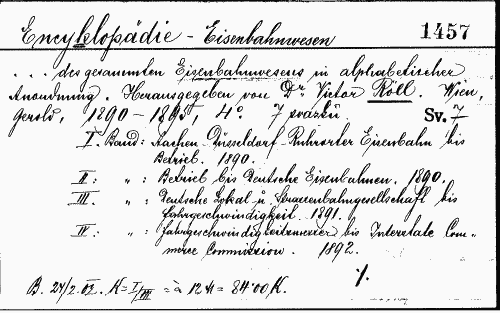 Encyklopädie - Eisenbahnwesen 1457
... des gesammten Eisenbahnwesens in alphabetischer
Anordnung. Herausgegeben von Dr Victor Röll. Wien,
Gerold, 1890 - 1895, 4o. 7 svazků. Sv. 7
I. Band: Aachen-Düsseldorf-Ruhrorter Eisenbahn bis
Betrieb. 1890.
II: „ : Betrieb bis Deutsche Eisenbahnen. 1890.
III. „ : Deutsche Lokal u. Strassenbahngesellschaft bis
Fahrgeschwindigkeit. 1891.
IV. „ : Fahrgeschwindigkeitsmesser bis Interstate Com-
merce Commission. 1892.
B. 24/2. 02. K = I/III = à 12 K = 84·00 K. %